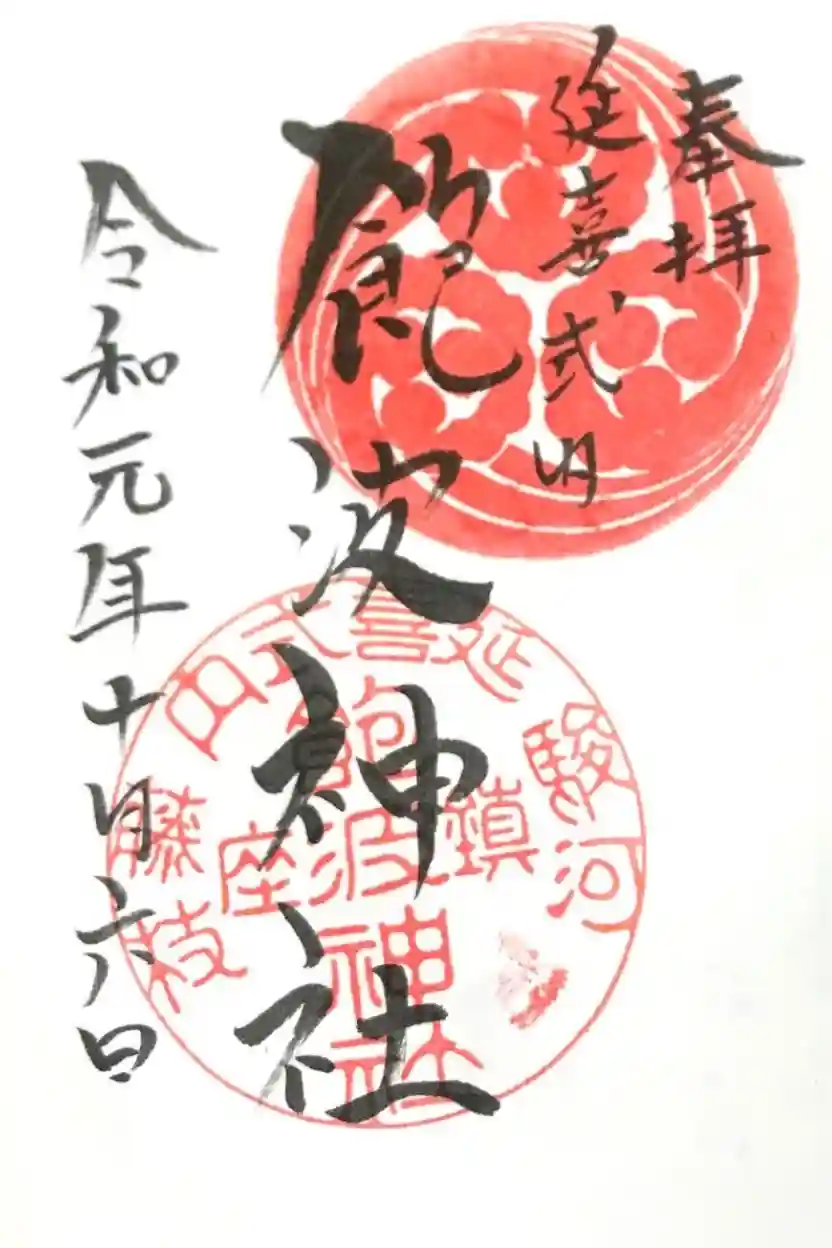 奉拝
延喜式内
飽波神社
令和元年十月六日
駿河
延喜式内
藤枝
鎮座
飽波神社